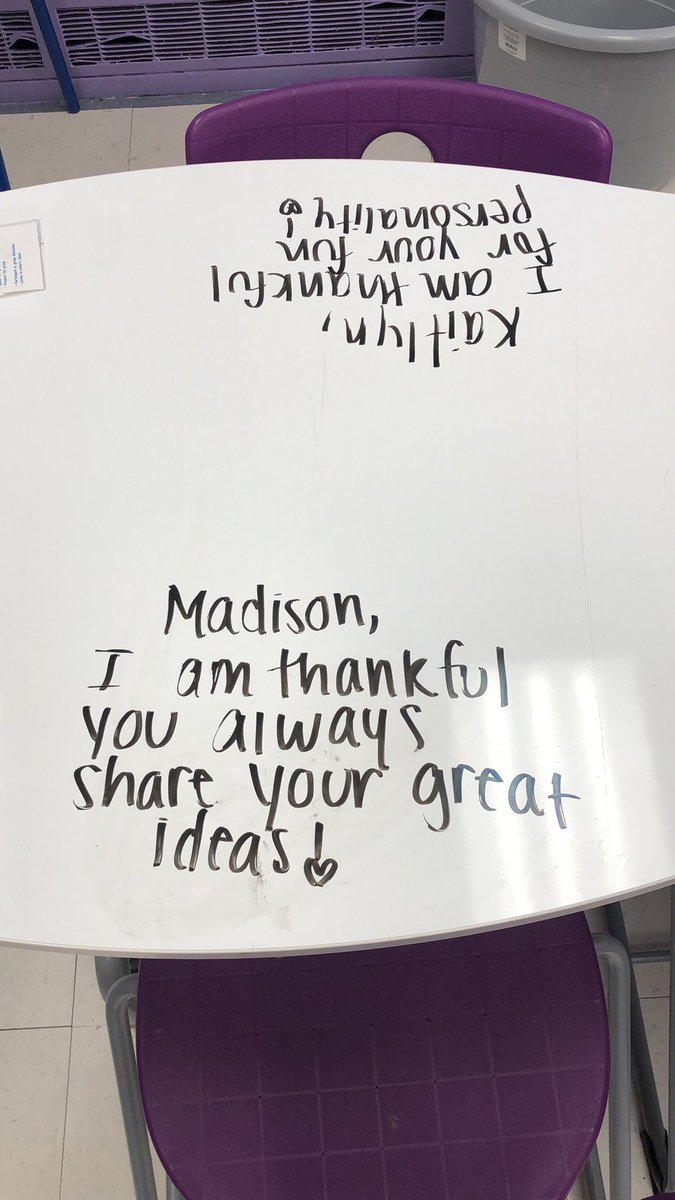 Kaitlyn,
I am thankful
for your fun
personality!
Madison,
I am thankful
you always
share your great
ideas!